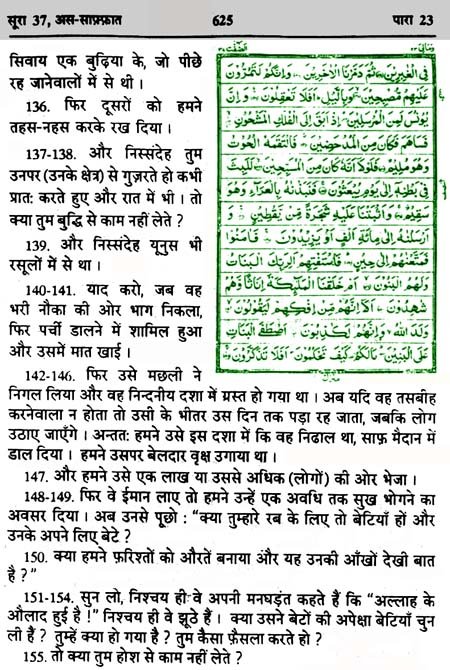 सूरा 37, अस-साफ़्फ़ात 625 पारा 23
सिवाय एक बुढ़िया के, जो पीछे
रह जानेवालों में से थी ।
136. फिर दूसरों को हमने
तहस-नहस करके रख दिया ।
137-138. और निस्संदेह तुम
उनपर (उनके क्षेत्र) से गुज़रते हो कभी
प्रातः करते हुए और रात में भी । तो
क्या तुम बुद्धि से काम नहीं लेते ?
139. और निस्संदेह यूनुस भी
रसूलों में से था ।
140-141. याद करो, जब वह
भरी नौका की ओर भाग निकला,
फिर पर्ची डालने में शामिल हुआ
और उसमें मात खाई ।
142-146. फिर उसे मछली ने
निगल लिया और वह निन्दनीय दशा में ग्रस्त हो गया था । अब यदि वह तसबीह
करनेवाला न होता तो उसी के भीतर उस दिन तक पड़ा रह जाता, जबकि लोग
उठाए जाएँगे । अन्ततः हमने उसे इस दशा में कि वह निढाल था, साफ़ मैदान में
डाल दिया । हमने उसपर बेलदार वृक्ष उगाया था ।
147. और हमने उसे एक लाख या उससे अधिक (लोगों) की ओर भेजा ।
148-149. फिर वे ईमान लाए तो हमने उन्हें एक अवधि तक सुख भोगने का
अवसर दिया । अब उनसे पूछो : “क्या तुम्हारे रब के लिए तो बेटियाँ हों और
उनके अपने लिए बेटे ?
150. क्या हमने फ़रिश्तों को औरतें बनाया और यह उनकी आँखों देखी बात
है ?”
151-154. सुन लो, निश्चय ही वे अपनी मनघड़ंत कहते हैं कि “अल्लाह के
औलाद हुई है !” निश्चय ही वे झूठे हैं । क्या उसने बेटों की अपेक्षा बेटियाँ चुन
ली हैं ? तुम्हें क्या हो गया है ? तुम कैसा फ़ैसला करते हो ?
155. तो क्या तुम होश से काम नहीं लेते ?
الصّٰفّٰت ٣٧
ومالی ٢٣
فِي الْغٰبِرِيْنَ ثُمَّ دَمَّرْنَا الْاٰخَرِيْنَ وَاِنَّكُمْ لَتَمُرُّوْنَ
عَلَيْهِمْ مُّصْبِحِيْنَ وَبِالَّيْلِ اَفَلَا تَعْقِلُوْنَ وَاِنَّ
يُوْنُسَ لَمِنَ الْمُرْسَلِيْنَ اِذْ اَبَقَ اِلَى الْفُلْكِ الْمَشْحُوْنِ
فَسَاهَمَ فَكَانَ مِنَ الْمُدْحَضِيْنَ فَالْتَقَمَهُ الْحُوْتُ
وَهُوَ مُلِيْمٌ فَلَوْلَا اَنَّهٗ كَانَ مِنَ الْمُسَبِّحِيْنَ لَلَبِثَ
فِيْ بَطْنِهٖ اِلٰى يَوْمِ يُبْعَثُوْنَ فَنَبَذْنٰهُ بِالْعَرَآءِ وَهُوَ
سَقِيْمٌ وَاَنْۢبَتْنَا عَلَيْهِ شَجَرَةً مِّنْ يَّقْطِيْنٍ وَ
اَرْسَلْنٰهُ اِلٰى مِائَةِ اَلْفٍ اَوْ يَزِيْدُوْنَ فَاٰمَنُوْا
فَمَتَّعْنٰهُمْ اِلٰى حِيْنٍ فَاسْتَفْتِهِمْ اَلِرَبِّكَ الْبَنَاتُ
وَلَهُمُ الْبَنُوْنَ اَمْ خَلَقْنَا الْمَلٰٓئِكَةَ اِنَاثًا وَّهُمْ
شٰهِدُوْنَ اَلَآ اِنَّهُمْ مِّنْ اِفْكِهِمْ لَيَقُوْلُوْنَ
وَلَدَ اللّٰهُ وَاِنَّهُمْ لَكٰذِبُوْنَ اَصْطَفَى الْبَنَاتِ
عَلَى الْبَنِيْنَ مَا لَكُمْ كَيْفَ تَحْكُمُوْنَ اَفَلَا تَذَكَّرُوْنَ